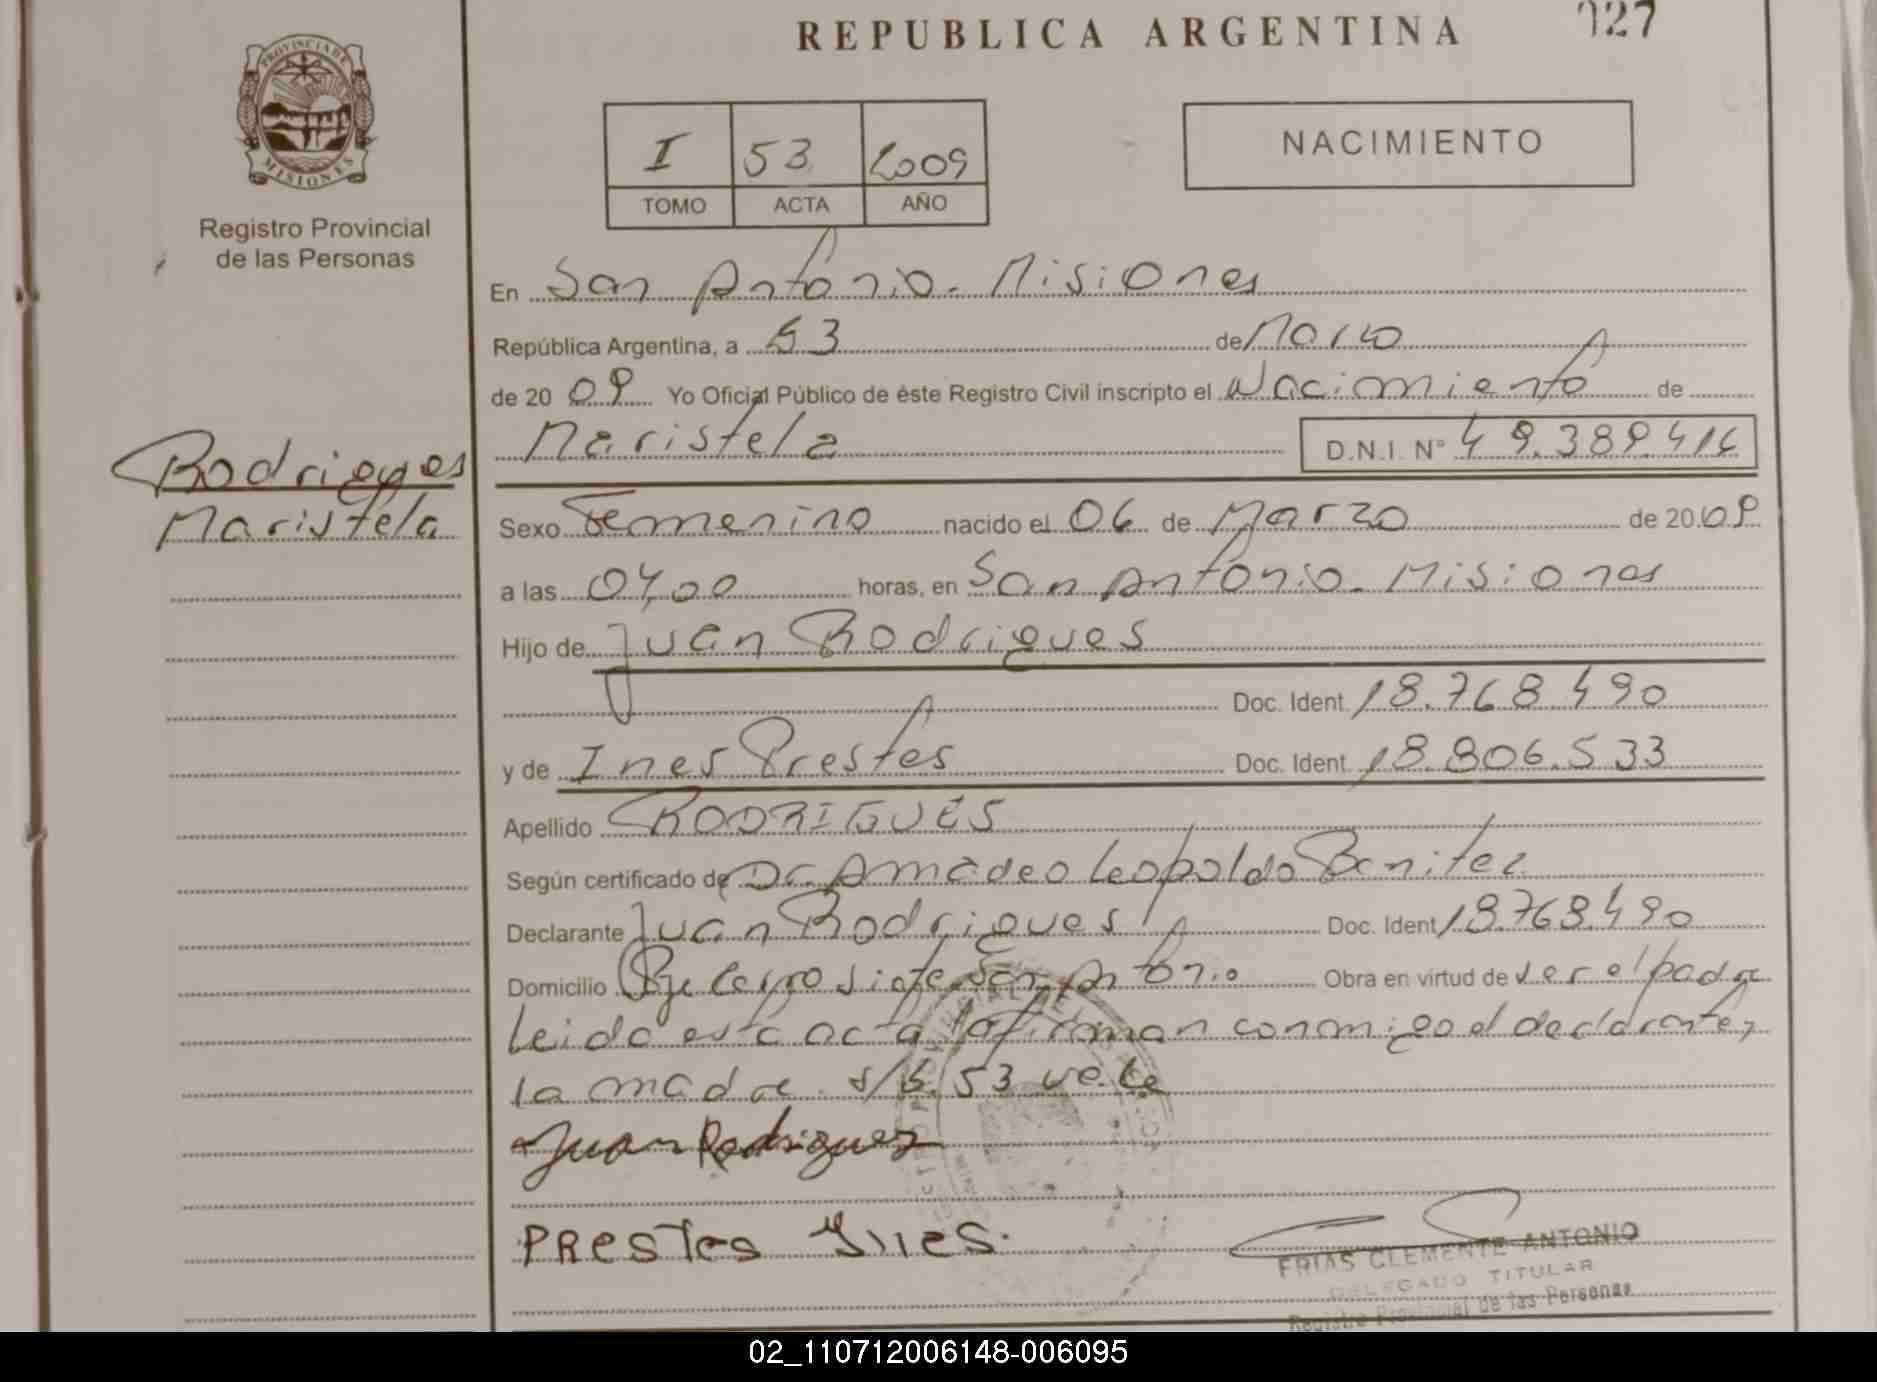 REPUBLICA ARGENTINA
027
PROVINCIA DE
MISIONES
Registro Provincial
de las Personas
I 53 2009
TOMO ACTA AÑO
NACIMIENTO
En San Antonio - Misiones
República Argentina, a de Marzo
de 20 09 Yo Oficial Público de éste Registro Civil inscripto el Nacimiento de
Maristela D.N.I. Nº 49.389.416
Rodrigues
Maristela
Sexo Femenino nacido el 06 de Marzo de 20 09
a las horas, en San Antonio - Misiones
Hijo de Juan Rodrigues
Doc. Ident. 18.768.490
y de Ines Prestes Doc. Ident. 18.806.533
Apellido RODRIGUES
Según certificado de Dr. Amadeo Leopoldo Benitez
Declarante Juan Rodrigues Doc. Ident 18.768.490
Domicilio San Antonio Obra en virtud de ser el padre
Leida esta acta la firman conmigo el declarante y
la madre. s/b 53 vale
Juan Rodriguez
PRESTES INES.
FRIAS CLEMENTE ANTONIO
DELEGADO TITULAR
Registro Provincial de las Personas
02_110712006148-006095